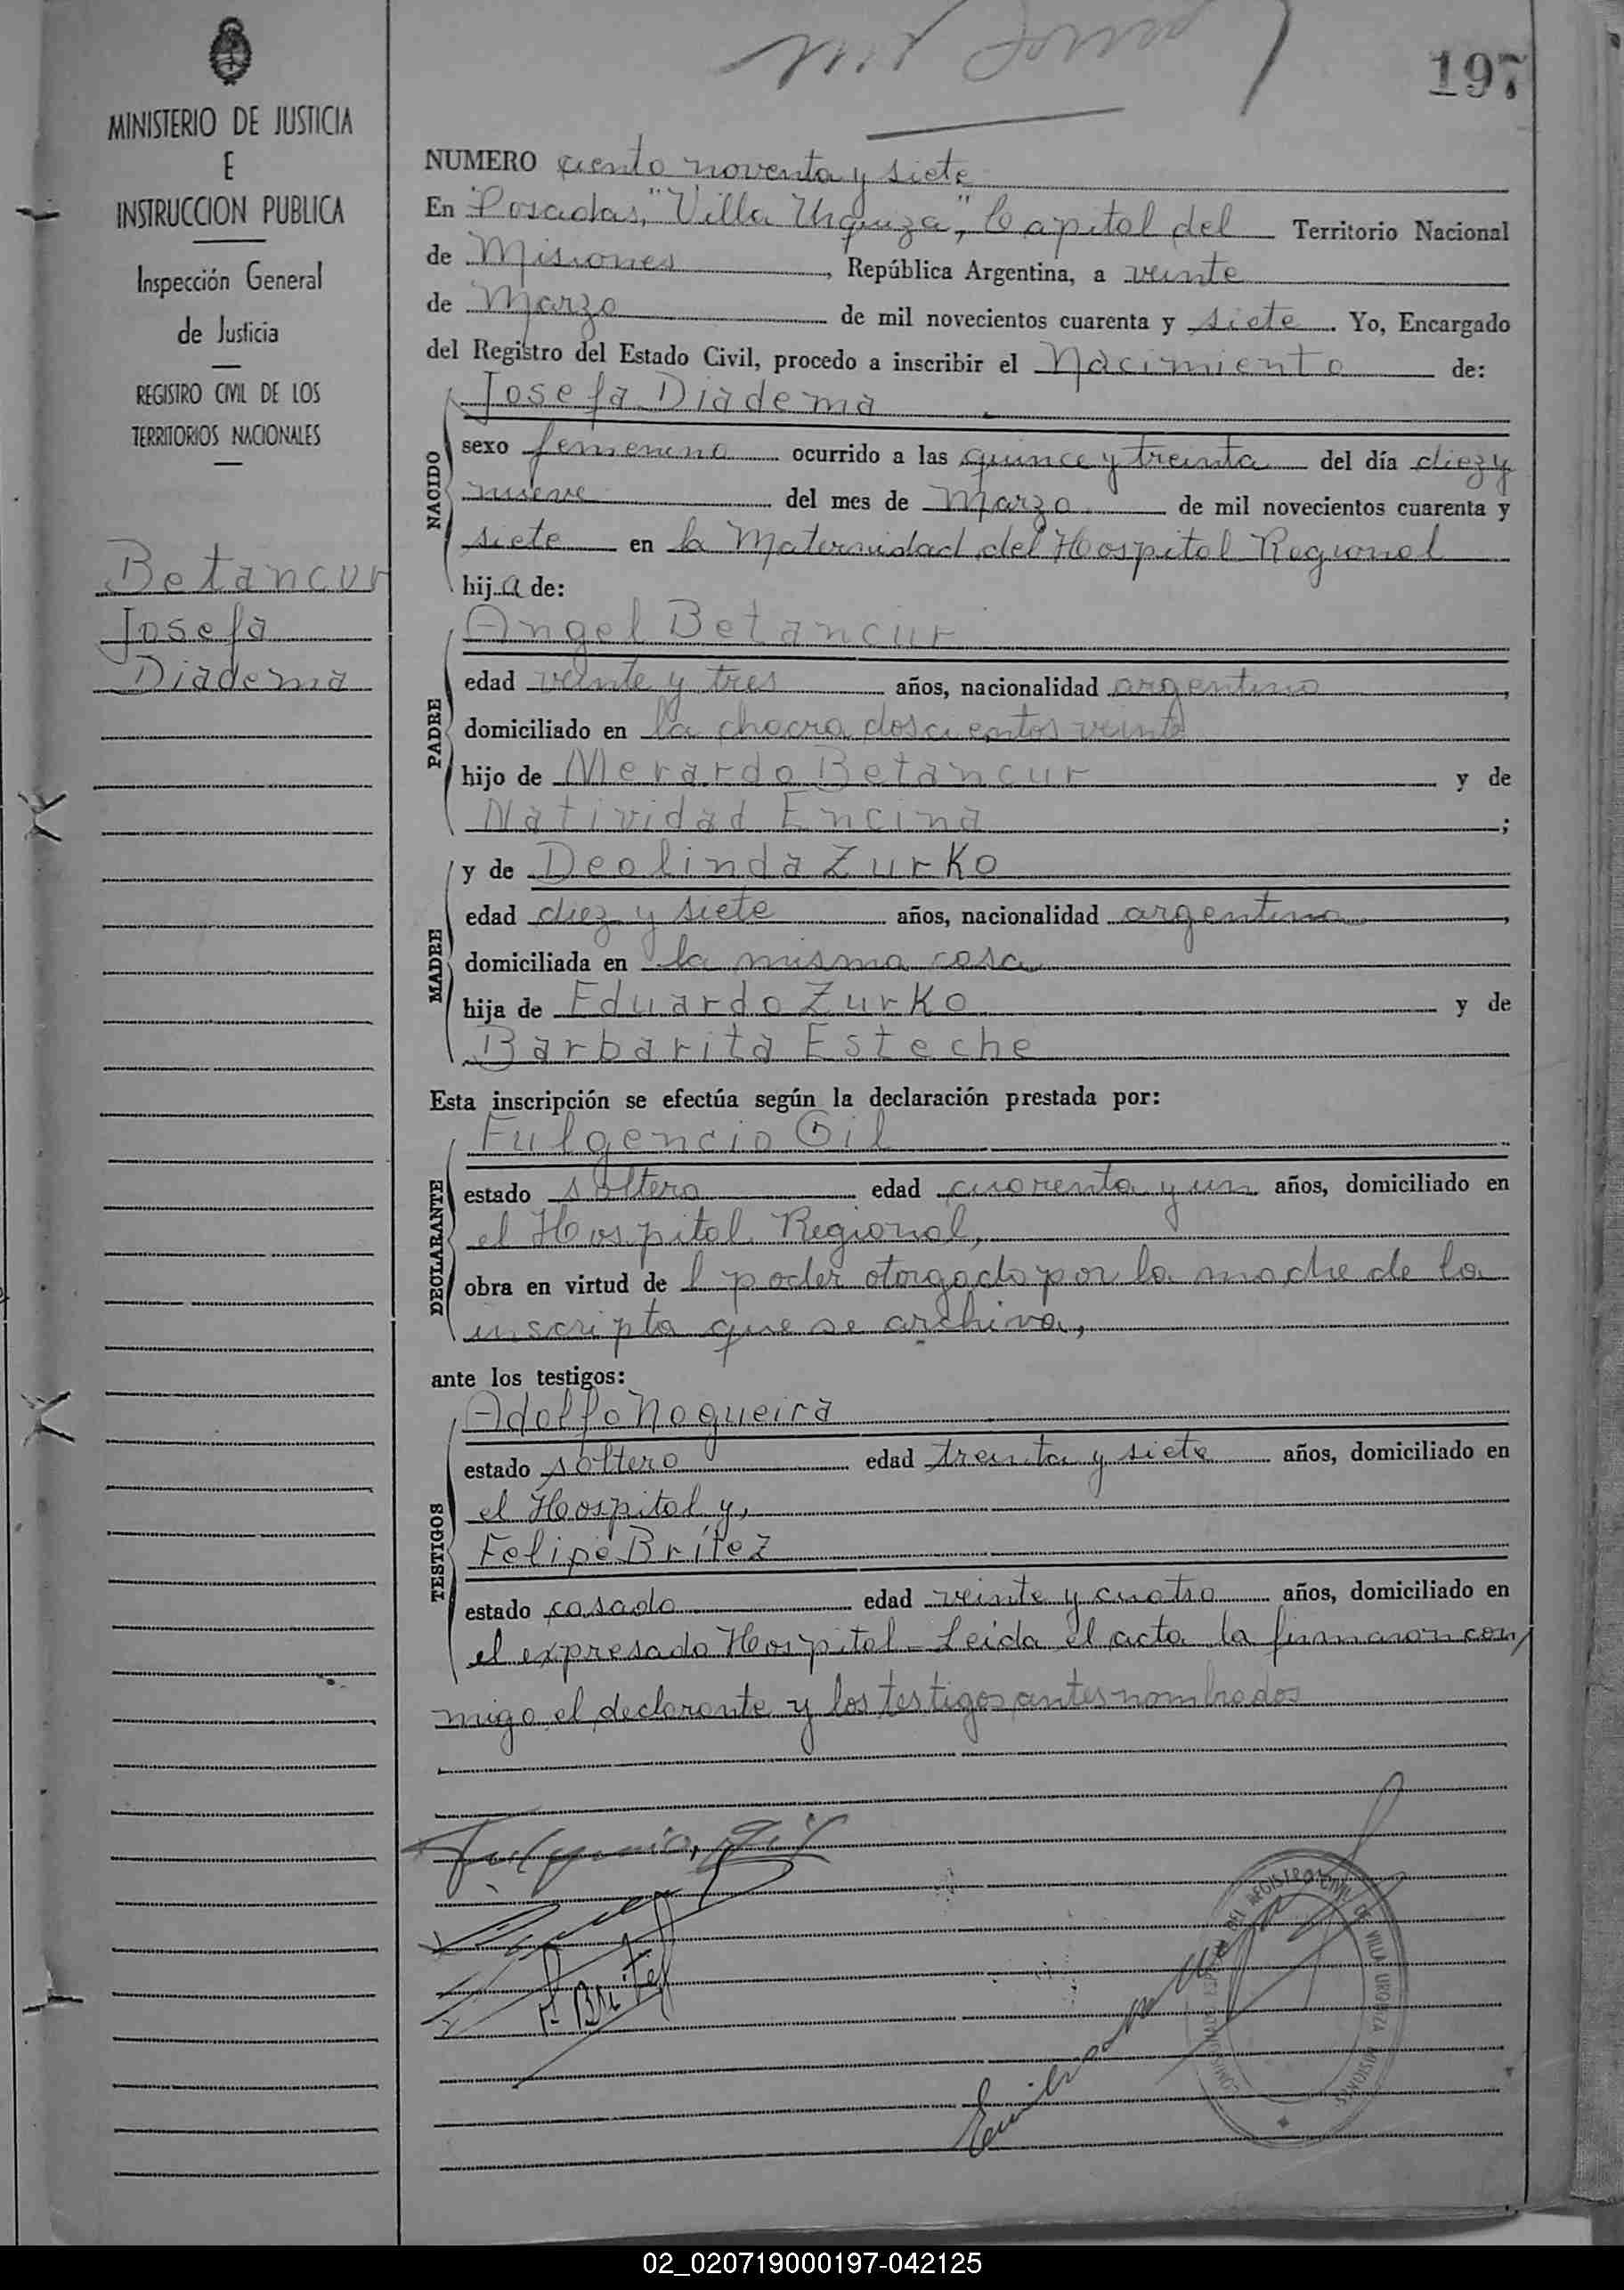 MINISTERIO DE JUSTICIA
E
INSTRUCCION PUBLICA
Inspección General
de Justicia
REGISTRO CIVIL DE LOS
TERRITORIOS NACIONALES
Betancur
Josefa
Diadema
197
NUMERO ciento noventa y siete
En Posadas, "Villa Urquiza", Capital del Territorio Nacional
de Misiones, República Argentina, a veinte
de Marzo de mil novecientos cuarenta y siete. Yo, Encargado
del Registro del Estado Civil, procedo a inscribir el Nacimiento de:
NACIDO
Josefa Diadema
sexo femenino ocurrido a las quince y treinta del día diez y
nueve del mes de Marzo de mil novecientos cuarenta y
siete en la Maternidad del Hospital Regional
hija de:
PADRE
Angel Betancur
edad veinte y tres años, nacionalidad argentino,
domiciliado en la chacra doscientos veinte
hijo de Merardo Betancur y de
Natividad Encina;
MADRE
y de Deolinda Zurko
edad diez y siete años, nacionalidad argentina,
domiciliada en la misma casa
hija de Eduardo Zurko y de
Barbarita Esteche
Esta inscripción se efectúa según la declaración prestada por:
DECLARANTE
Fulgencio Gil
estado soltero edad cuarenta y un años, domiciliado en
el Hospital Regional,
obra en virtud del poder otorgado por la madre de la
inscripta que se archiva,
ante los testigos:
TESTIGOS
Adolfo Nogueira
estado soltero edad treinta y siete años, domiciliado en
el Hospital y,
Felipe Britez
estado casado edad veinte y cuatro años, domiciliado en
el expresado Hospital - Leida el acta la firmaron con
migo el declarante y los testigos antes nombrados
Fulgencio Gil
F. Britez
DEL REGISTRO CIVIL DE VILLA URQUIZA MISIONES
02_020719000197-042125